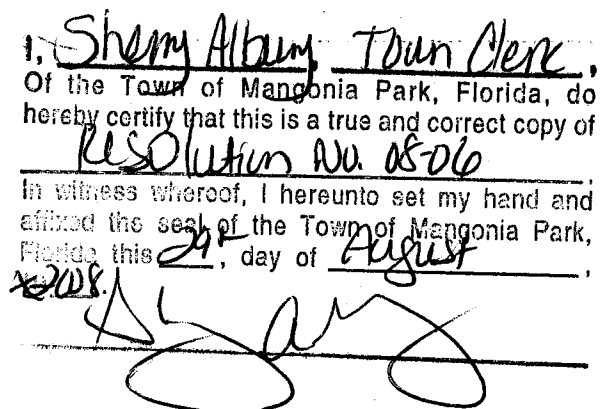 I, Sherry Albury, Town Clerk,
Of the Town of Mangonia Park, Florida, do
hereby certify that this is a true and correct copy of
Resolution No. 08-06.
In witness whereof, I hereunto set my hand and
affixed the seal of the Town of Mangonia Park,
Florida this 29th, day of August,
2008.